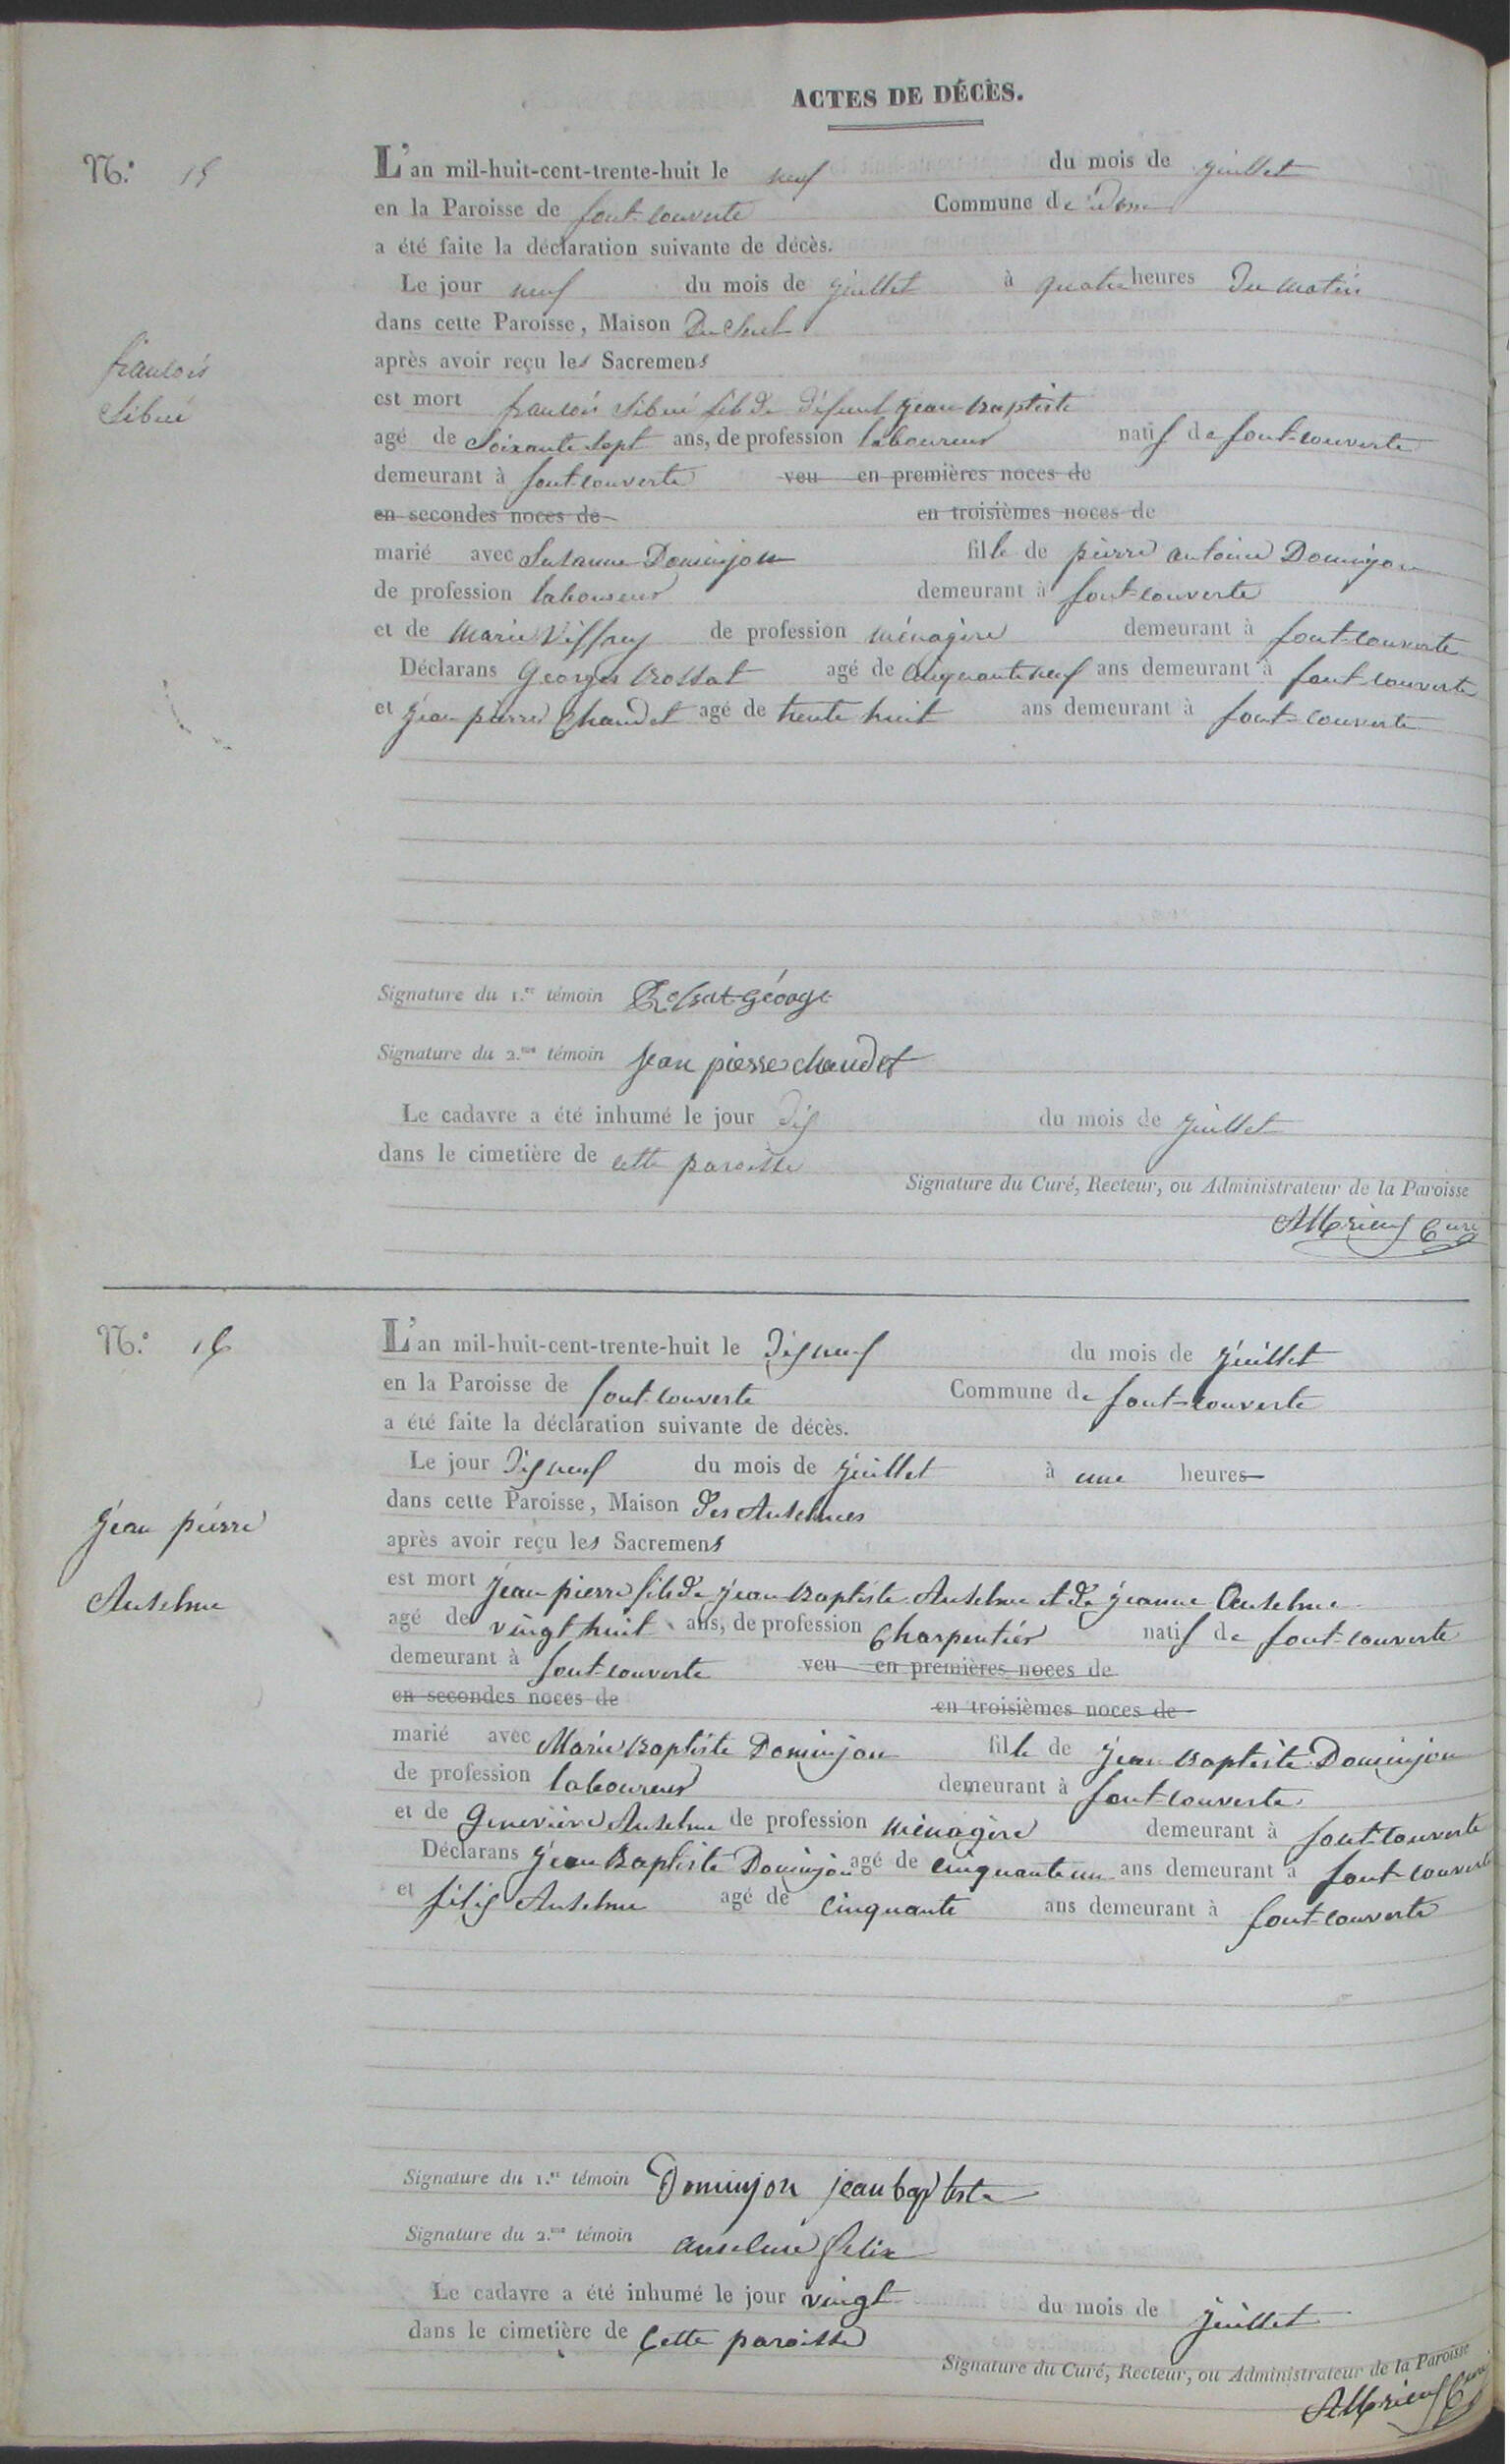 ACTES DE DÉCÈS.
N.° 15
L'an mil-huit-cent-trente-huit le neuf du mois de juillet
en la Paroisse de font-couverte Commune de
a été faite la déclaration suivante de décès.
Le jour neuf du mois de juillet à quatre heures du matin
dans cette Paroisse, Maison
après avoir reçu les Sacremens
francois
Sibué
est mort francois Sibué fils de défunt jean baptiste
agé de Soixante sept ans, de profession laboureur natif de font-couverte
demeurant à font-couverte veu en premières noces de
en secondes noces de en troisièmes noces de
marié avec Susanne Dominjon fille de pierre antoine Dominjon
de profession laboureur demeurant à font-couverte
et de Marie Viffrey de profession ménagère demeurant à font-couverte
Déclarans Georges Rossat agé de cinquante neuf ans demeurant à font couverte
et jean pierre Chaudet agé de trente huit ans demeurant à font-couverte
Signature du 1.er témoin Rossat George
Signature du 2.me témoin jean pierre chaudet
Le cadavre a été inhumé le jour dix du mois de juillet
dans le cimetière de cette paroisse
Signature du Curé, Recteur, ou Administrateur de la Paroisse
Curé
N.° 16
L'an mil-huit-cent-trente-huit le dix neuf du mois de juillet
en la Paroisse de font-couverte Commune de font-couverte
a été faite la déclaration suivante de décès.
Le jour dix neuf du mois de juillet à une heures
dans cette Paroisse, Maison des Anselmes
après avoir reçu les Sacremens
jean pierre
Anselme
est mort jean pierre fils de jean baptiste Anselme et de jeanne Anselme
agé de vingt huit ans, de profession Charpentier natif de font-couverte
demeurant à font-couverte veu en premières noces de
en secondes noces de en troisièmes noces de
marié avec Marie baptiste Dominjon fille de jean baptiste Dominjon
de profession laboureur demeurant à font-couverte
et de Geneviève Anselme de profession ménagère demeurant à font-couverte
Déclarans jean Baptiste Dominjon agé de cinquante un ans demeurant à font-couverte
et félix Anselme agé de cinquante ans demeurant à font-couverte
Signature du 1.er témoin Dominjon jean baptiste
Signature du 2.me témoin anselme felix
Le cadavre a été inhumé le jour vingt du mois de juillet
dans le cimetière de cette paroisse
Signature du Curé, Recteur, ou Administrateur de la Paroisse
Curé